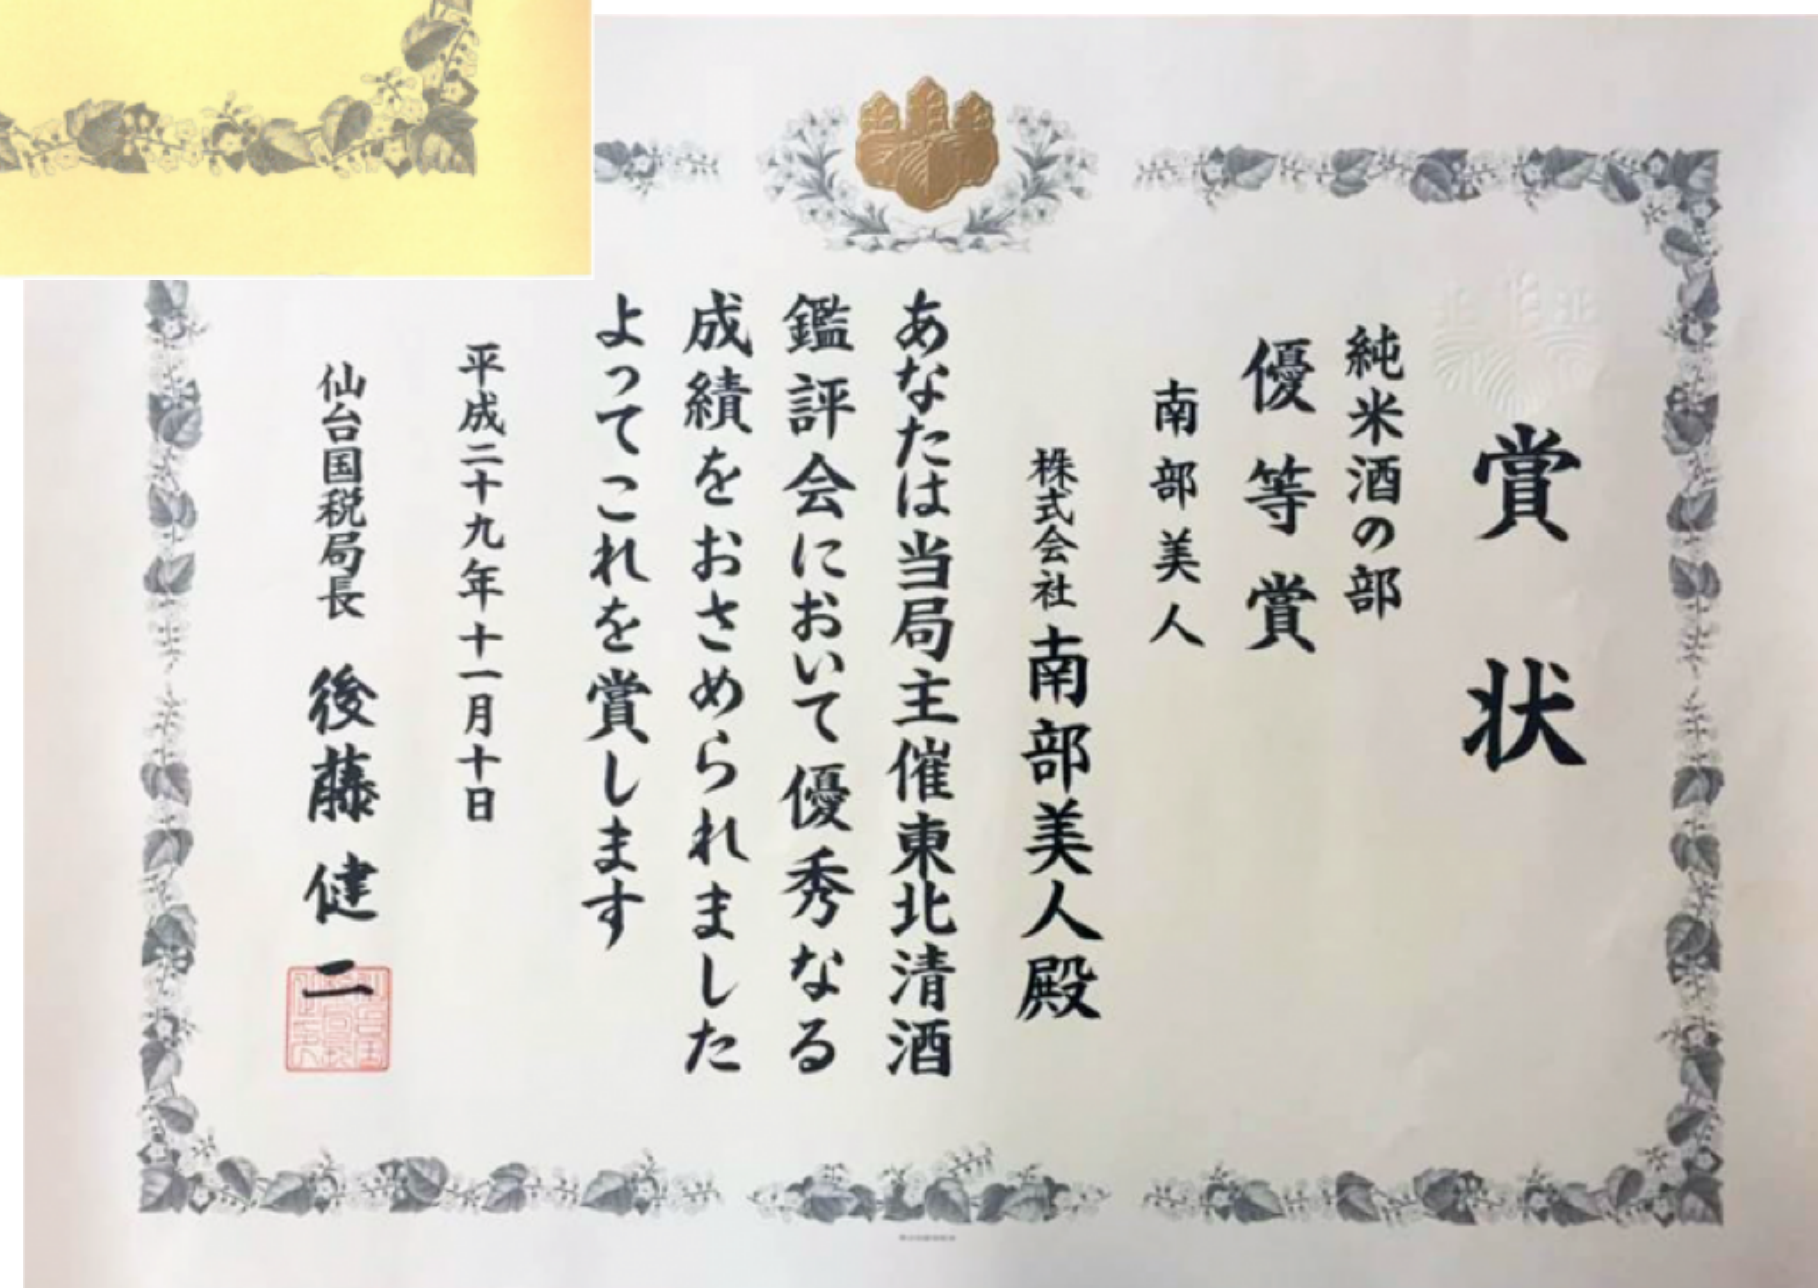 賞状
純米酒の部
優等賞
南部美人
株式会社 南部美人殿
あなたは当局主催東北清酒
鑑評会において優秀なる
成績をおさめられました
よってこれを賞します
平成二十九年十一月十日
仙台国税局長 後藤健二